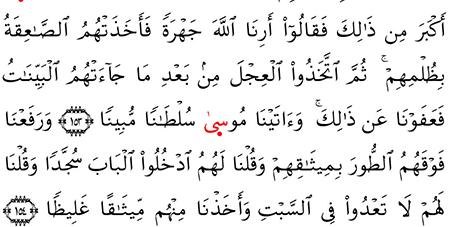 أَكْبَرَ مِن ذَٰلِكَ فَقَالُوٓا۟ أَرِنَا ٱللَّهَ جَهْرَةً فَأَخَذَتْهُمُ ٱلصَّـٰعِقَةُ
بِظُلْمِهِمْ ۚ ثُمَّ ٱتَّخَذُوا۟ ٱلْعِجْلَ مِنۢ بَعْدِ مَا جَآءَتْهُمُ ٱلْبَيِّنَـٰتُ
فَعَفَوْنَا عَن ذَٰلِكَ ۚ وَءَاتَيْنَا مُوسَىٰ سُلْطَـٰنًا مُّبِينًا ﴿١٥٣﴾ وَرَفَعْنَا
فَوْقَهُمُ ٱلطُّورَ بِمِيثَـٰقِهِمْ وَقُلْنَا لَهُمُ ٱدْخُلُوا۟ ٱلْبَابَ سُجَّدًا وَقُلْنَا
لَهُمْ لَا تَعْدُوا۟ فِى ٱلسَّبْتِ وَأَخَذْنَا مِنْهُم مِّيثَـٰقًا غَلِيظًا ﴿١٥٤﴾